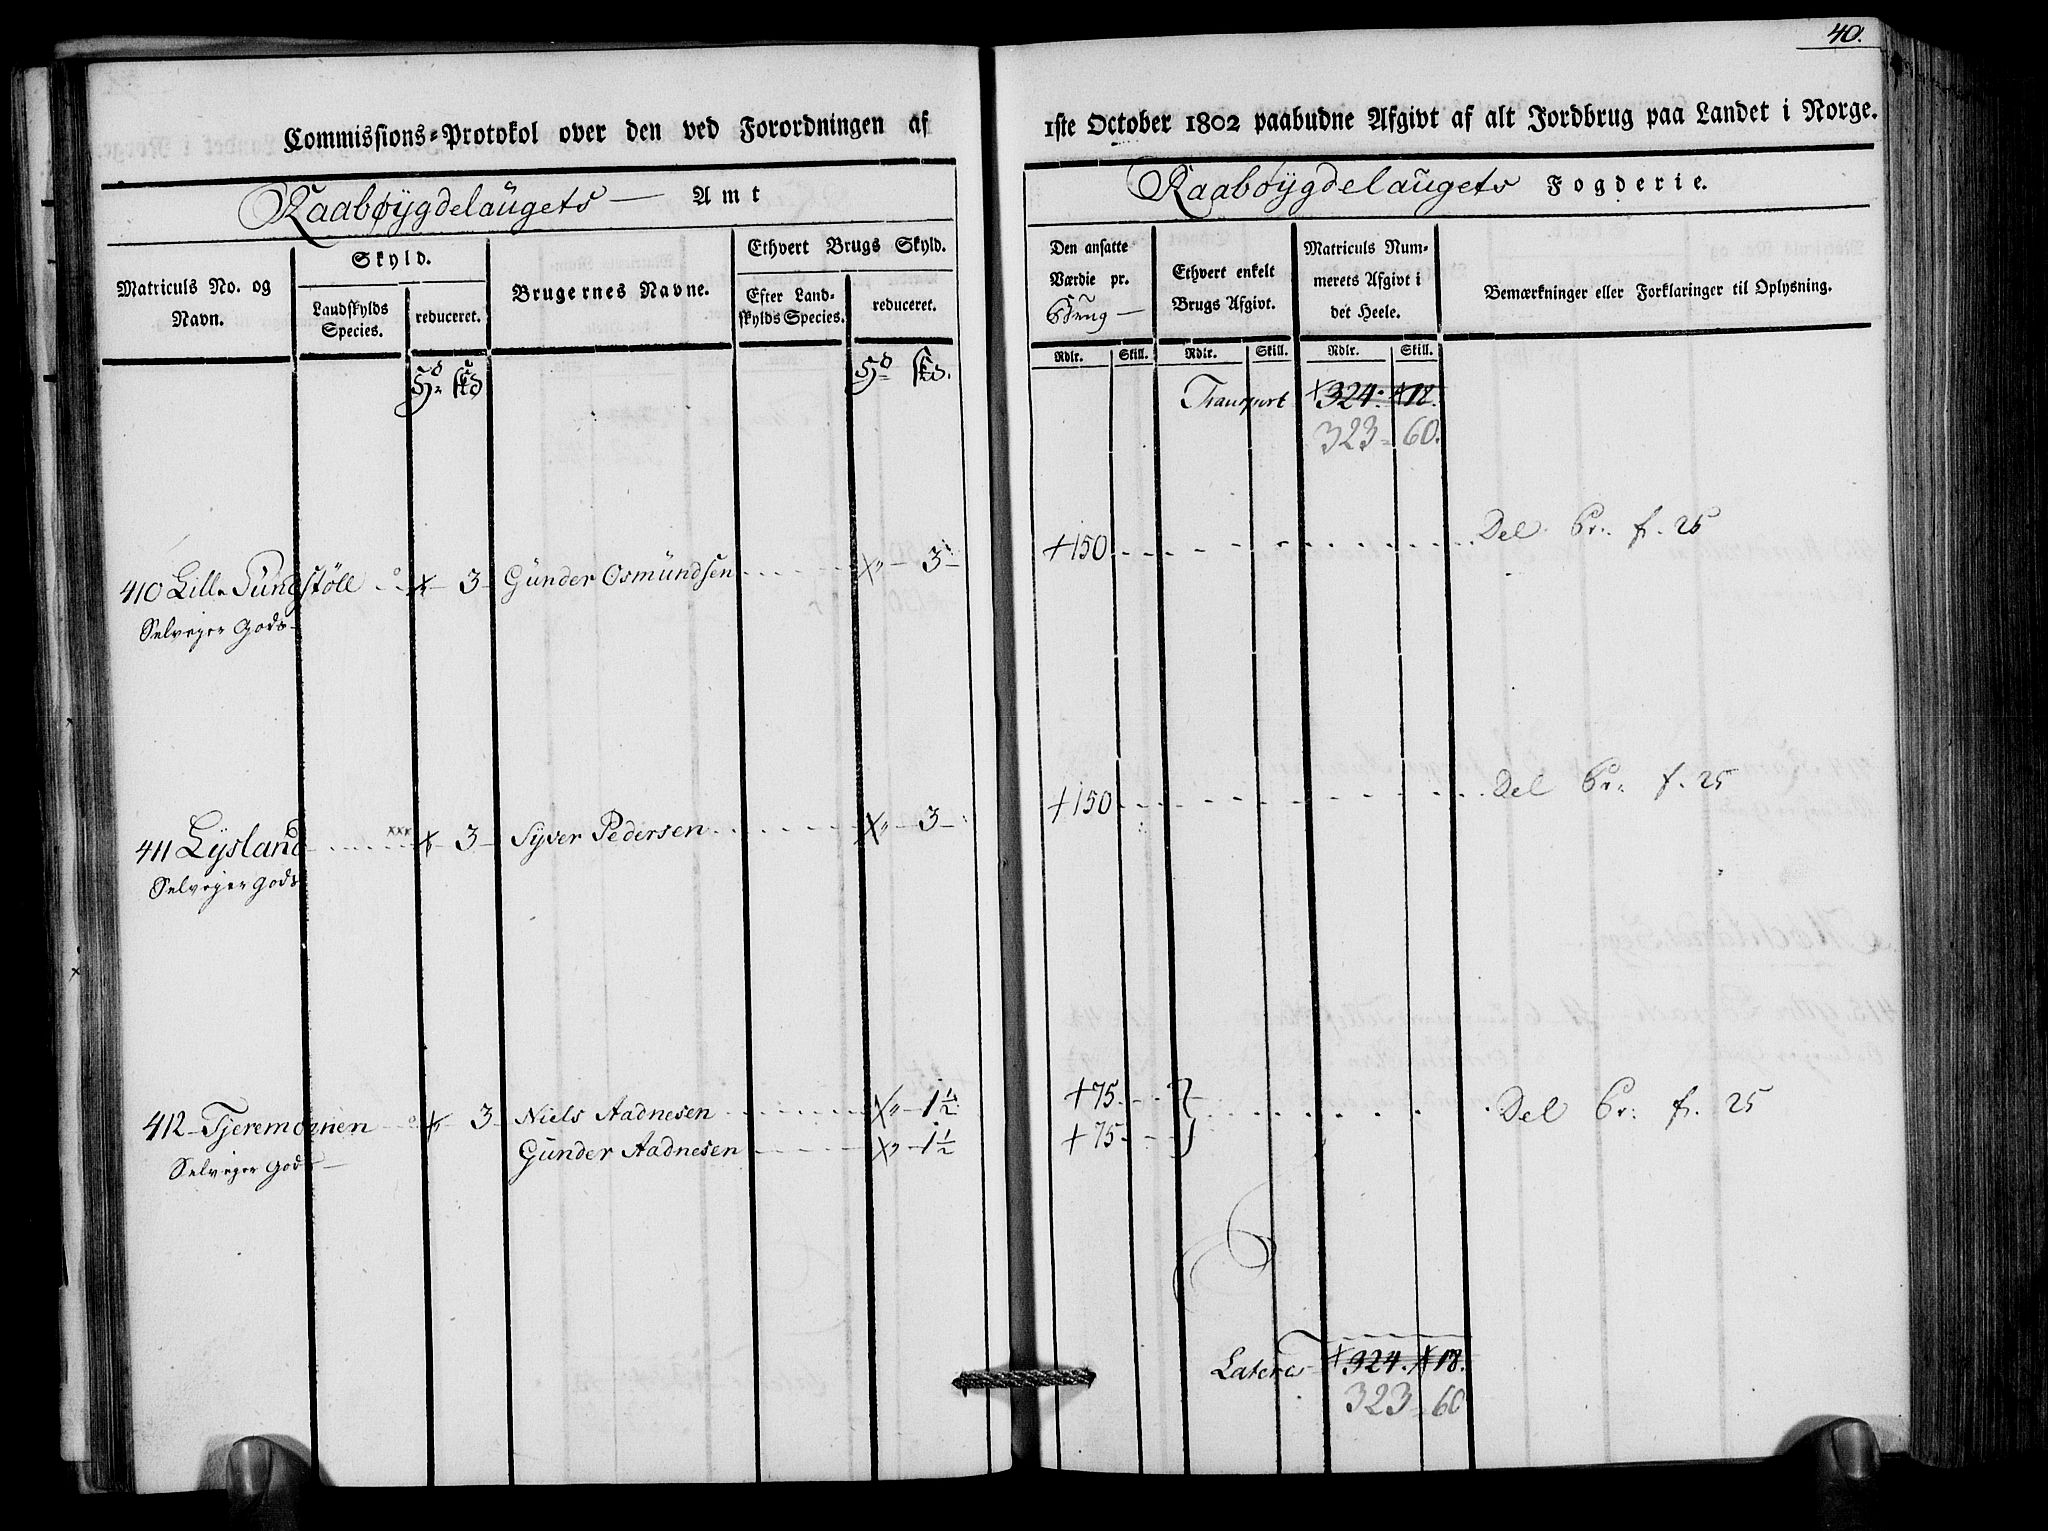 40.
Commissions-Protokol over den ved Forordningen af 1ste October 1802 paabudne Afgivt af alt Jordbrug paa Landet i Norge.
Raabøygdelaugets Amt
Raabøygdelaugets Fogderie.
Matriculs No. og Navn.
Skyld.
Landskylds Species.
reduceret.
Brugernes Navne.
Ethvert Brugs Skyld.
Efter Landskylds Species.
reduceret.
Den ansatte Værdie pr. Brug
Ethvert enkelt Brugs Afgivt.
Matriculs Nummerets Afgivt i det Heele.
Bemærkninger eller Forklaringer til Oplysning.
Rdlr. Skill. Rdlr. Skill. Rdlr. Skill.
Hd Skd Hd Skd.
Transport 324. 18.
323 = 60.
410 Lille Sundstöll - 3 - Gunder Osmundsen - 3 - +150 - Del Pr. f. 25
Selveyer Gods
411 Lysland - 3 - Syver Pedersen - 3 - +150 - Del Pr. f. 25
Selveyer Gods
412 - Tjeremoenen - 3 - Niels Aadnesen - 1 1/2 +75 - Del Pr. f. 25
Gunder Aadnesen - 1 1/2 +75
Selveyer Gods
Latere 324. 18.
323 = 60